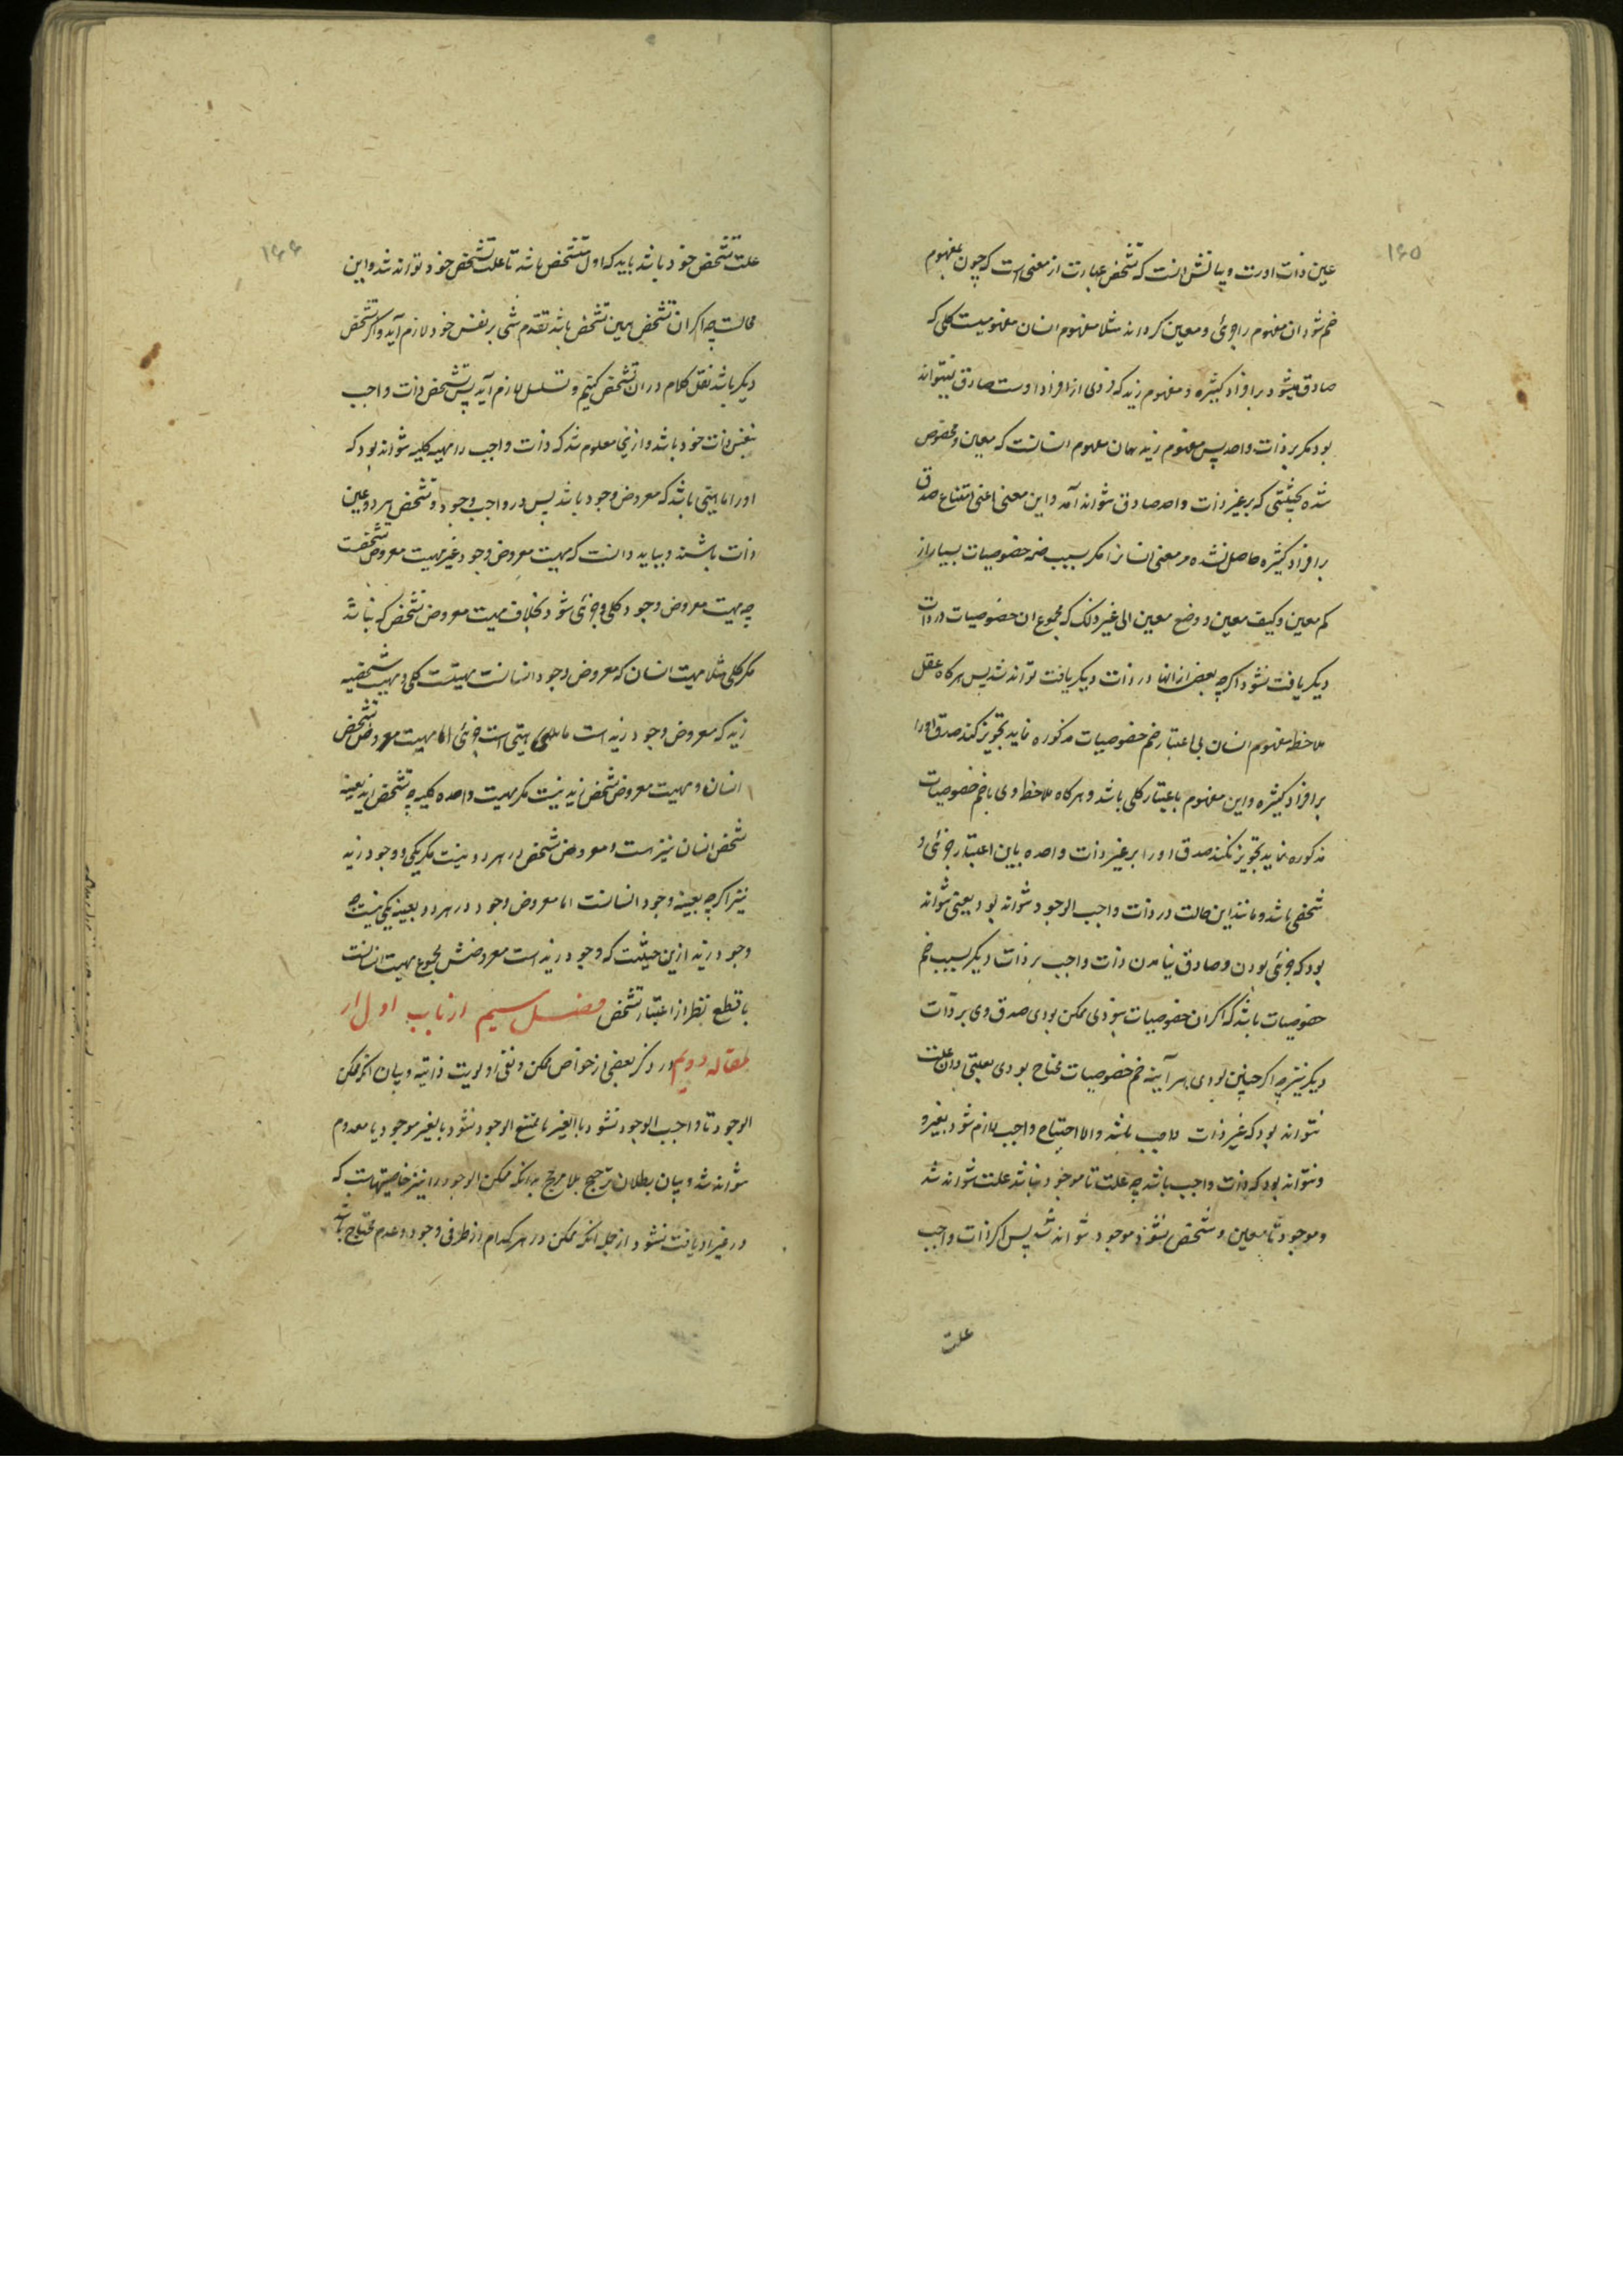 ۱۶۵
عین ذات اوست و بیانش آنست که تشخص عبارت از معنی است که چون بمفهوم
ضم شود ان مفهوم را جزئی و معین کرداند مثلا مفهوم انسان مفهومیست کلی که
صادق میشود بر افراد کثیره و مفهوم زید که فردی از افراد اوست صادق نمیتواند
بود مکر بر ذات واحد پس مفهوم زید همان مفهوم انسانست که معین و مخصوص
شده بحیثیتی که بر غیر ذات واحد صادق نتواند آمد و این معنی اعنی امتناع صدق
بر افراد کثیره حاصل نشده مر معنی انسانرا مکر بسبب ضم خصوصیات بسیار از
کم معین و کیف معین و وضع معین الی غیر ذلک که مجموع ان خصوصیات در ذات
دیکر یافت نشود اکرچه بعض از انها در ذات دیکر یافت تواند شد پس هرکاه عقل
ملاحظه مفهوم انسان بی اعتبار ضم خصوصیات مذکوره نماید تجویز کند صدق او را
بر افراد کثیره و این مفهوم باعتبار کلی باشد و هرکاه ملاحظه وی با ضم خصوصیات
مذکوره نماید تجویز نکند صدق او را بر غیر ذات واحده باین اعتبار جزئی و
شخصی باشد و مانند این حالت در ذات واجب الوجود نتواند بود یعنی نتواند
بود که جزئی بودن و صادق نیامدن ذات واجب بر ذات دیکر بسبب ضم
خصوصیات باشد که اکر ان خصوصیات نبودی ممکن بودی صدق وی بر ذات
دیکر نیز چه اکر چنین بودی هر آینه ضم خصوصیات محتاج بودی بعلتی و ان علت
نتواند بود که غیر ذات واجب باشد والا احتیاج واجب لازم شود بغیر و
و نتواند بود که ذات واجب باشد چه علت تا موجود نباشد علت نتواند شد
و موجود تا معین و متشخص نشود موجود نتواند شد پس اکر ذات واجب
علت
۱۶۶
علت تشخص خود باشد باید که اول متشخص باشد تا علت تشخص خود تواند شد و این
محالست چه اکر ان تشخص همین تشخص باشد تقدم شی بر نفس خود لازم آید و اکر تشخص
دیکر باشد نقل کلام در ان تشخص کنیم و تسلسل لازم آید پس تشخص ذات واجب
بنفس ذات خود باشد و ازینجا معلوم شد که ذات واجب را مهیه کلیه نتواند بود که
او را ماهیتی باشد که معروض وجود باشد پس در واجب وجود و تشخص هر دو عین
ذات باشند و بباید دانست که مهیت معروض وجود غیر مهیت معروض تشخصت
چه مهیت معروض وجود کلی و جزئی شود بخلاف مهیت معروض تشخص که نباشد
مکر کلی مثلا مهیت انسان که معروض وجود انسانست مهیتست کلی و مهیت شخصیه
زید که معروض وجود زید است ماهیتی است جزئی اما مهیت معروض تشخص
انسان و مهیت معروض تشخص زید نیست مکر مهیت واحده کلیه چه تشخص زید بعینه
تشخص انسان نیز هست و معروض تشخص در هر دو نیست مکر یکی و وجود زید
نیز اکرچه بعینه وجود انسانست اما معروض وجود در هر دو بعینه یکی نیست چه
وجود زید ازین حیثیت که وجود زید است معروضش مجموع مهیت انسانست
با قطع نظر از اعتبار تشخص فصل سیم از باب اول از
مقاله دویم در ذکر بعضی از خواص ممکن و نفی اولویت ذاتیه و بیان انکه ممکن
الوجود تا واجب الوجود نشود بالغیر یا ممتنع الوجود نشود بالغیر موجود یا معدوم
نتواند شد و بیان بطلان ترجیح بلا مرجح بدانکه ممکن الوجود را نیز خاصیتهاست که
در غیر او یافت نشود از جمله انکه ممکن در هر کدام از طرفی وجود و عدم محتاج باشد